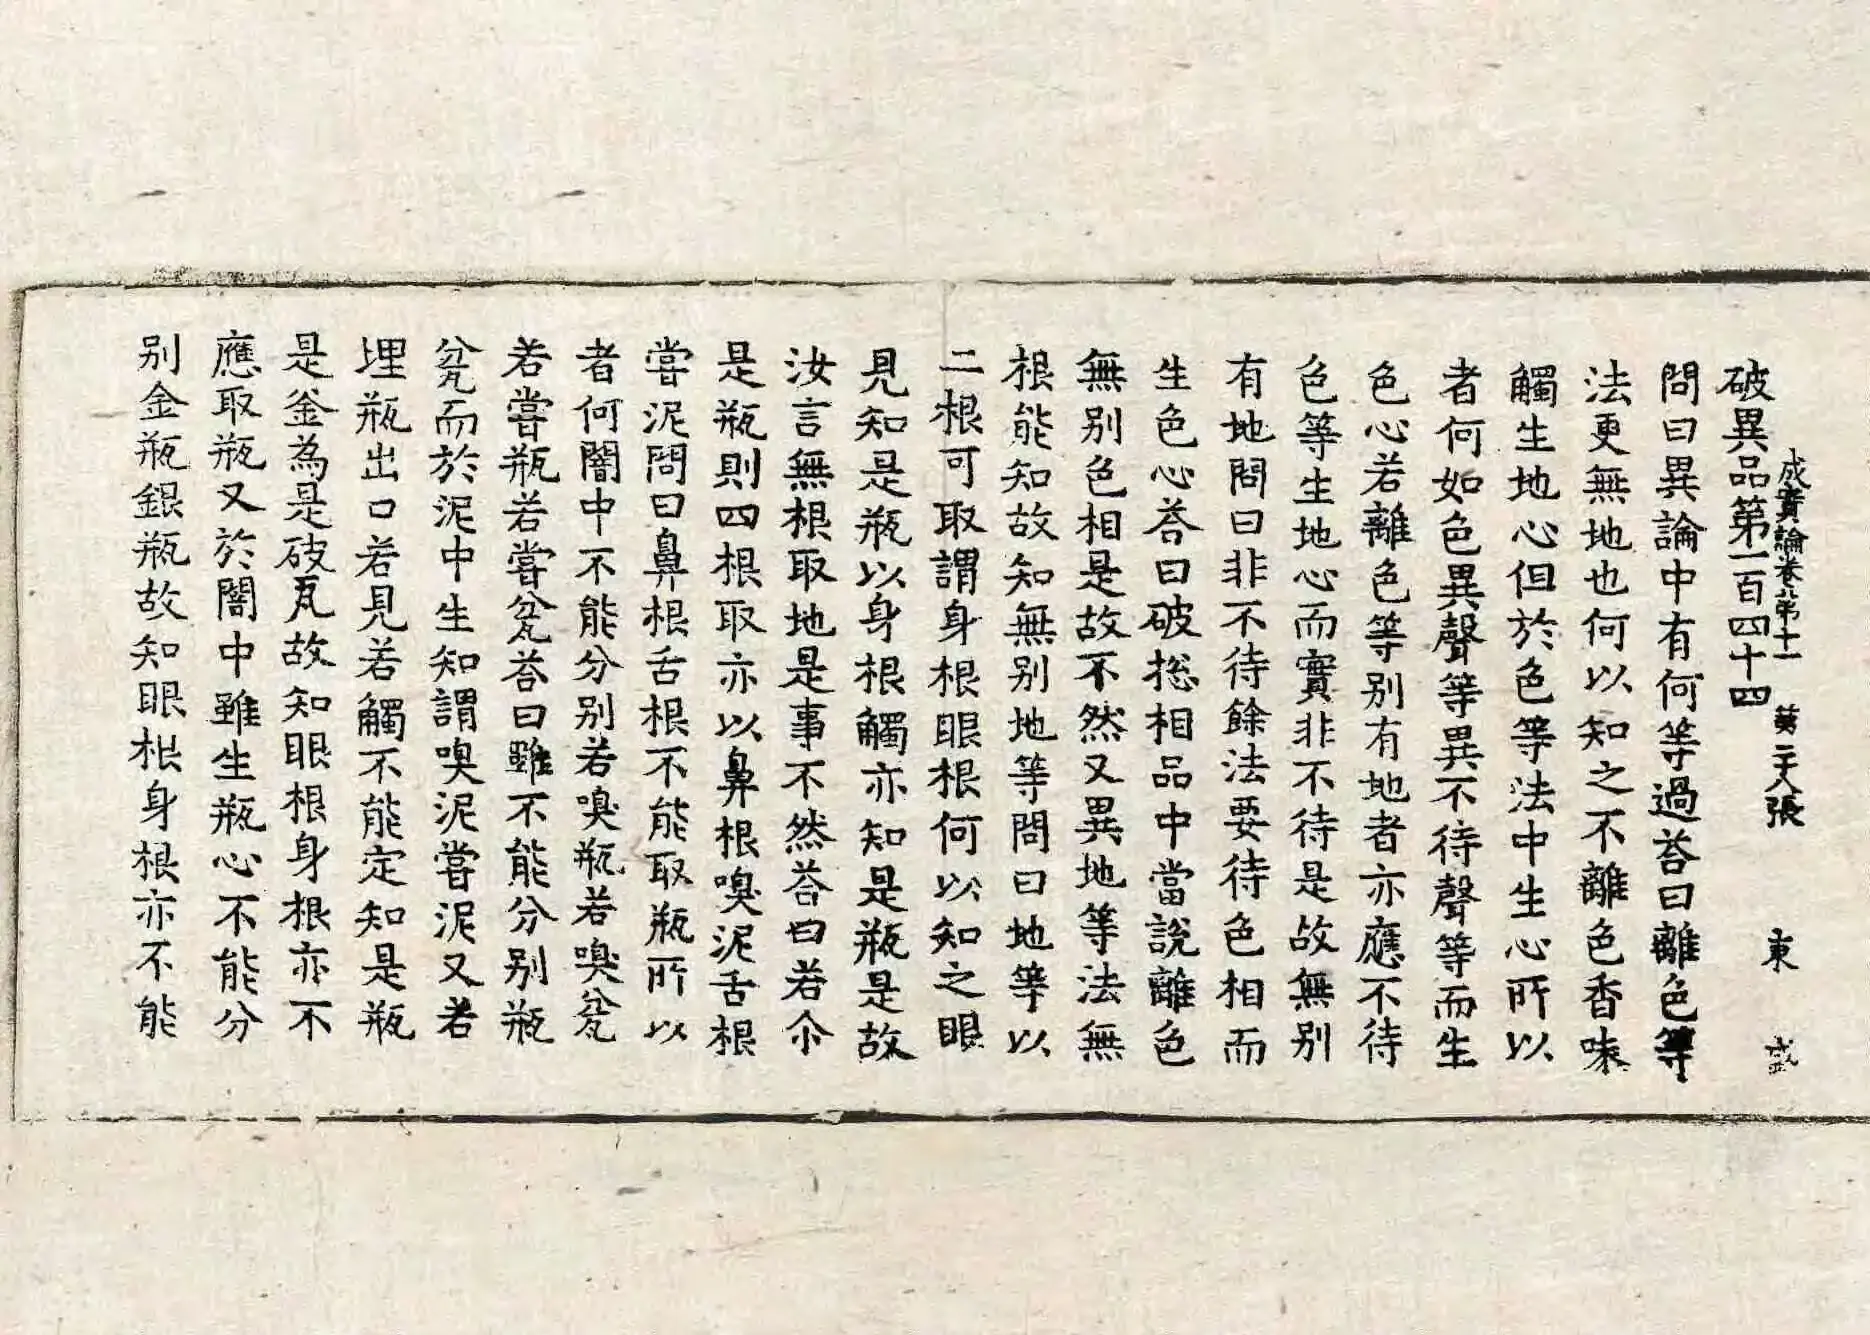 成實論卷第十一 第二十八張 東 
破異品第一百四十四
問曰異論中有何等過荅曰離色等
法更無地也何以知之不離色香味
觸生地心但於色等法中生心所以
者何如色異聲等異不待聲等而生
色心若離色等別有地者亦應不待
色等生地心而實非不待是故無別
有地問曰非不待餘法要待色相而
生色心荅曰破捴相品中當說離色
無別色相是故不然又異地等法無
根能知故知無別地等問曰地等以
二根可取謂身根眼根何以知之眼
見知是瓶以身根觸亦知是瓶是故
汝言無根取地是事不然荅曰若尒
是瓶則四根取亦以鼻根嗅泥舌根
嘗泥問曰鼻根舌根不能取瓶所以
者何闇中不能分別若嗅瓶若嗅瓫
若嘗瓶若嘗瓫荅曰雖不能分別瓶
瓫而於泥中生知謂嗅泥嘗泥又若
埋瓶出口若見若觸不能定知是瓶
是釜為是破瓦故知眼根身根亦不
應取瓶又於闇中雖生瓶心不能分
別金瓶銀瓶故知眼根身根亦不能